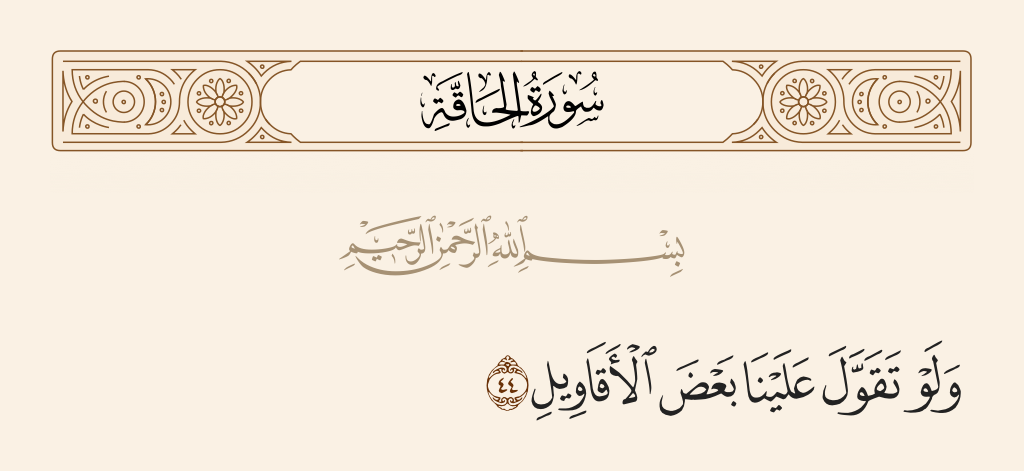 سُورَةُ الحَاقَّةِ
بِسْمِ ٱللَّهِ ٱلرَّحْمَٰنِ ٱلرَّحِيمِ
وَلَوْ تَقَوَّلَ عَلَيْنَا بَعْضَ ٱلْأَقَاوِيلِ ٤٤